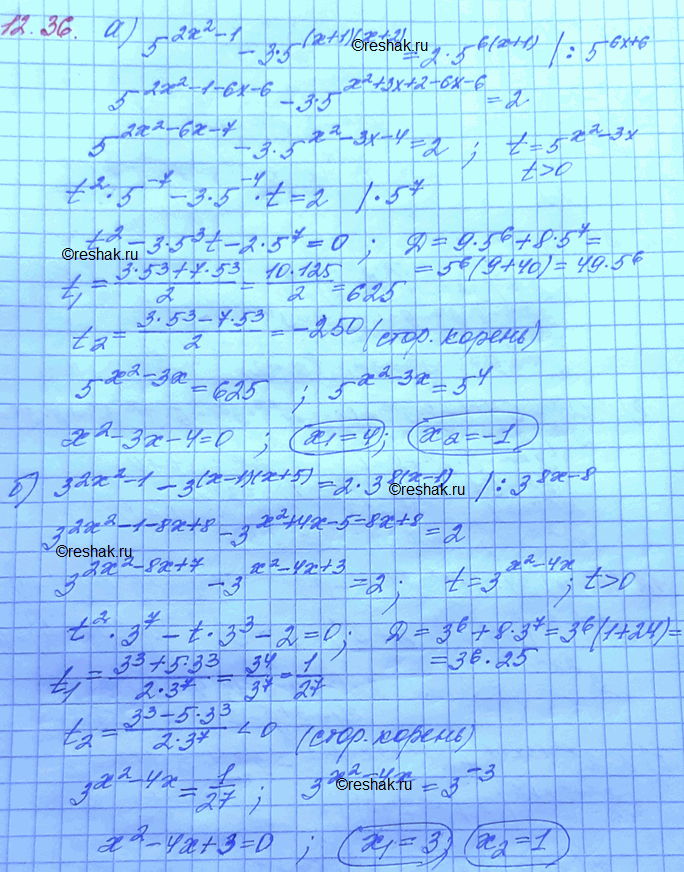 12.36. а) 5^{2x²-1} - 3·5^{(x+1)(x+2)} = 2·5^{6(x+1)} /: 5^{6x+6}
©reshak.ru
5^{2x²-1-6x-6} - 3·5^{x²+3x+2-6x-6} = 2
5^{2x²-6x-7} - 3·5^{x²-3x-4} = 2 ; t = 5^{x²-3x}
t>0
t²·5^{-7} - 3·5^{-4}·t = 2 /·5⁷
t² - 3·5³t - 2·5⁷ = 0 ; Д = 9·5⁶ + 8·5⁷ =
= 5⁶(9+40) = 49·5⁶
©reshak.ru
t₁ = (3·5³+7·5³)/2 = (10·125)/2 = 625
t₂ = (3·5³-7·5³)/2 = -250 (стор. корень)
5^{x²-3x} = 625 ; 5^{x²-3x} = 5⁴
x²-3x-4=0 ; x₁=4 ; x₂=-1
б) 3^{2x²-1} - 3^{(x-1)(x+5)} = 2·3^{8(x-1)} /: 3^{8x-8}
©reshak.ru
3^{2x²-1-8x+8} - 3^{x²+4x-5-8x+8} = 2
©reshak.ru
3^{2x²-8x+7} - 3^{x²-4x+3} = 2 ; t = 3^{x²-4x} ; t>0
t²·3⁷ - t·3³ - 2 = 0 ; Д = 3⁶ + 8·3⁷ = 3⁶(1+24) =
= 3⁶·25
t₁ = (3³+5·3³)/(2·3⁷) = 3⁴/3⁷ = 1/27
t₂ = (3³-5·3³)/(2·3⁷) < 0 (стор. корень)
©reshak.ru
3^{x²-4x} = 1/27 ; 3^{x²-4x} = 3^{-3}
©reshak.ru
x²-4x+3=0 ; x₁=3 x₂=1